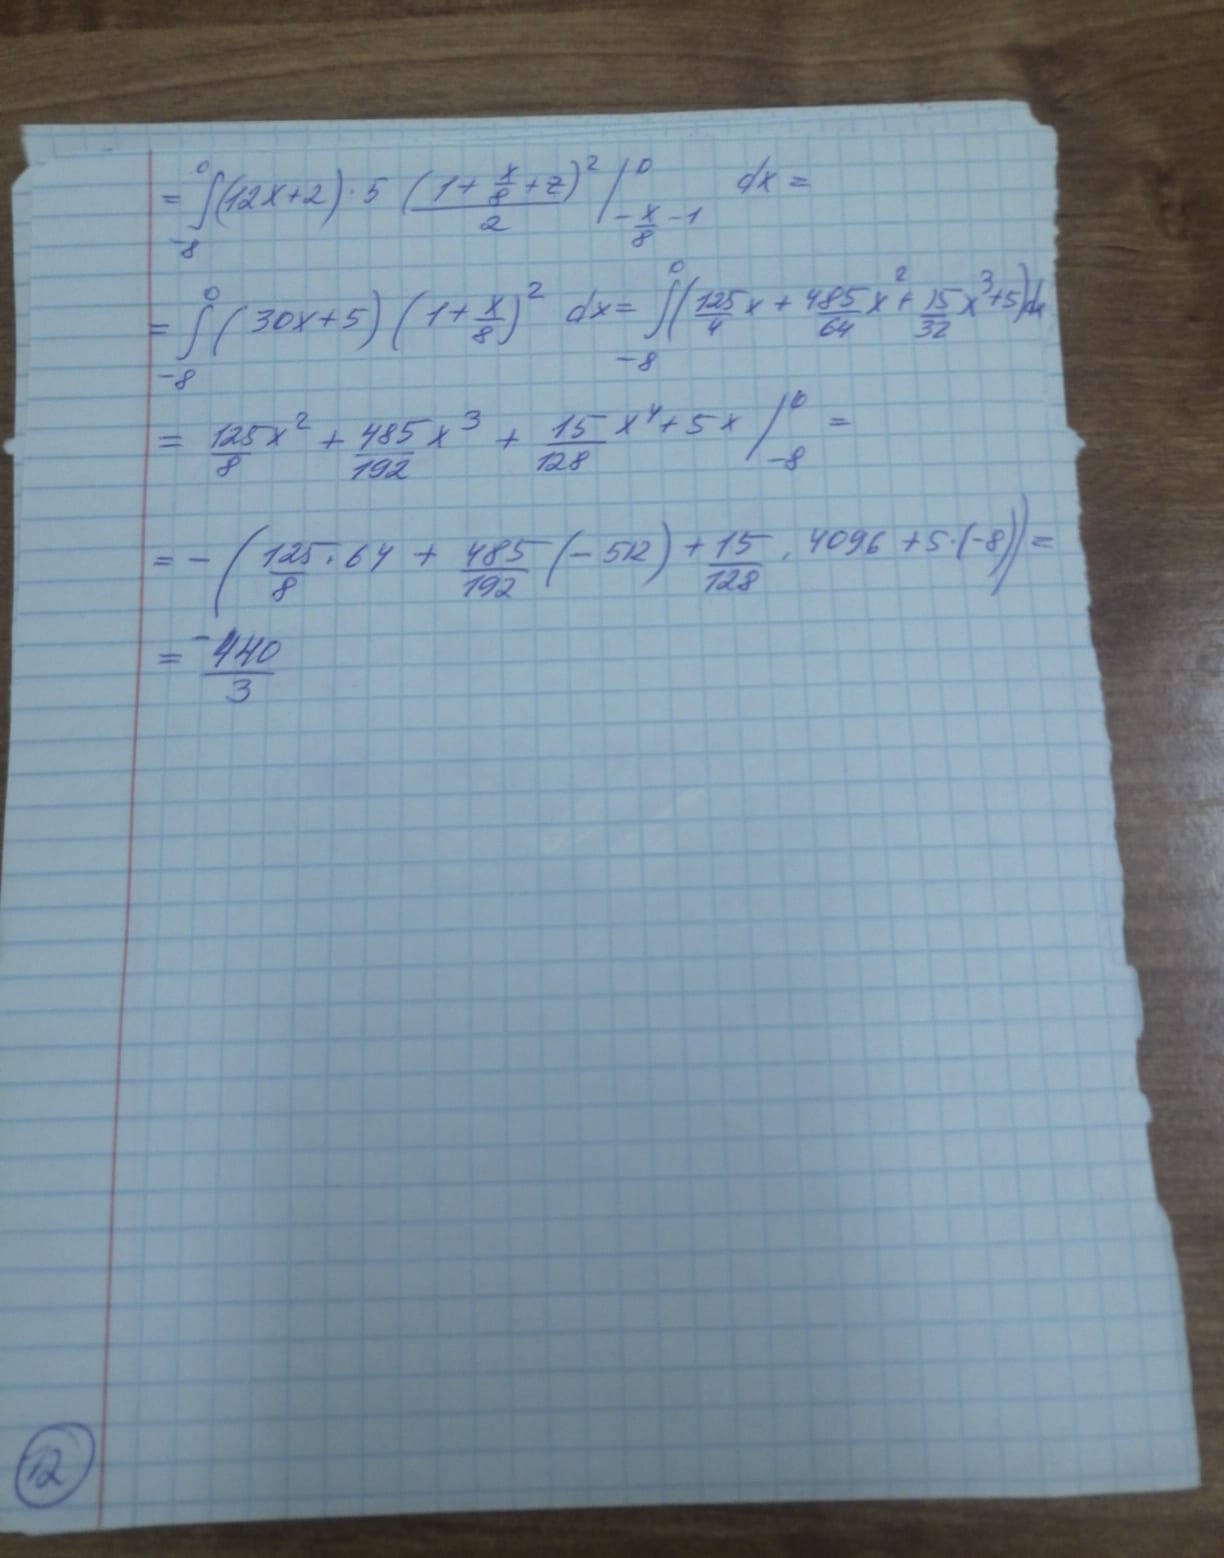 = ∫_{-8}^{0} (12x+2)·5 (1+x/8+z)²/2 |_{-x/8-1}^{0} dx =
= ∫_{-8}^{0} (30x+5)(1+x/8)² dx = ∫_{-8}^{0} (125/4 x + 485/64 x² + 15/32 x³ + 5)dx
= 125/8 x² + 485/192 x³ + 15/128 x⁴ + 5x |_{-8}^{0} =
= -(125/8 · 64 + 485/192 (-512) + 15/128 · 4096 + 5·(-8)) =
= -440/3
12